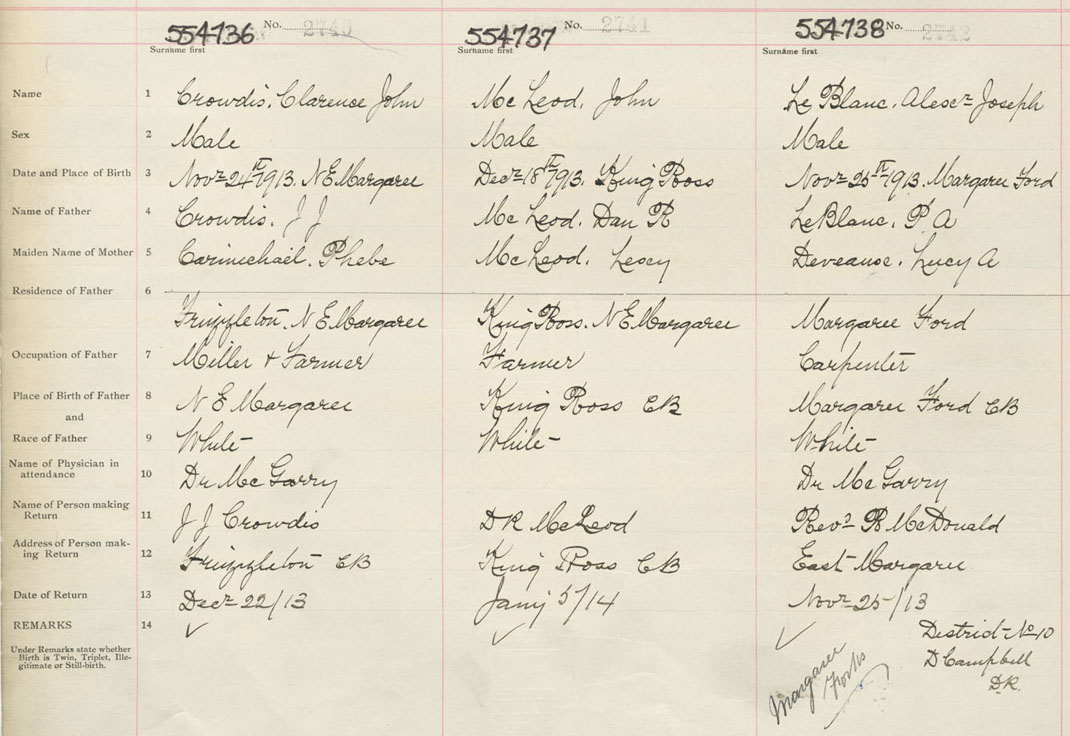 554736 No. 2740 554737 No. 2741 554738 No. 2742
Surname first Surname first Surname first
Name 1 Crowdis. Clarence John Mc Leod, John Le Blanc. Alexr Joseph
Sex 2 Male Male Male
Date and Place of Birth 3 Novr 24th 1913. N E Margaree Decr 18th 1913. King Ross Novr 25th 1913. Margaree Ford
Name of Father 4 Crowdis. J J Mc Leod. Dan R LeBlanc. P. A
Maiden Name of Mother 5 Carmichael. Phebe McLeod. Lucy A
Residence of Father 6
Frizzleton. N E Margaree King Ross. N E Margaree Margaree Ford
Occupation of Father 7 Miller + Farmer Farmer Carpenter
Place of Birth of Father 8 N E Margaree King Ross CB Margaree Ford CB
and
Race of Father 9 White White White
Name of Physician in 10 Dr McGarry Dr McGarry
attendance
Name of Person making 11 J J Crowdis D R McLeod Revd R McDonald
Return
Address of Person mak- 12 Frizzleton CB King Ross CB East Margaree
ing Return
Date of Return 13 Decr 22/13 Jany 5/14 Novr 25/13
REMARKS 14 ✓ ✓ ✓ District No 10
Under Remarks state whether D Campbell
Birth is Twin, Triplet, Ille- D.R.
gitimate or Still-birth.
Margaree
Forks